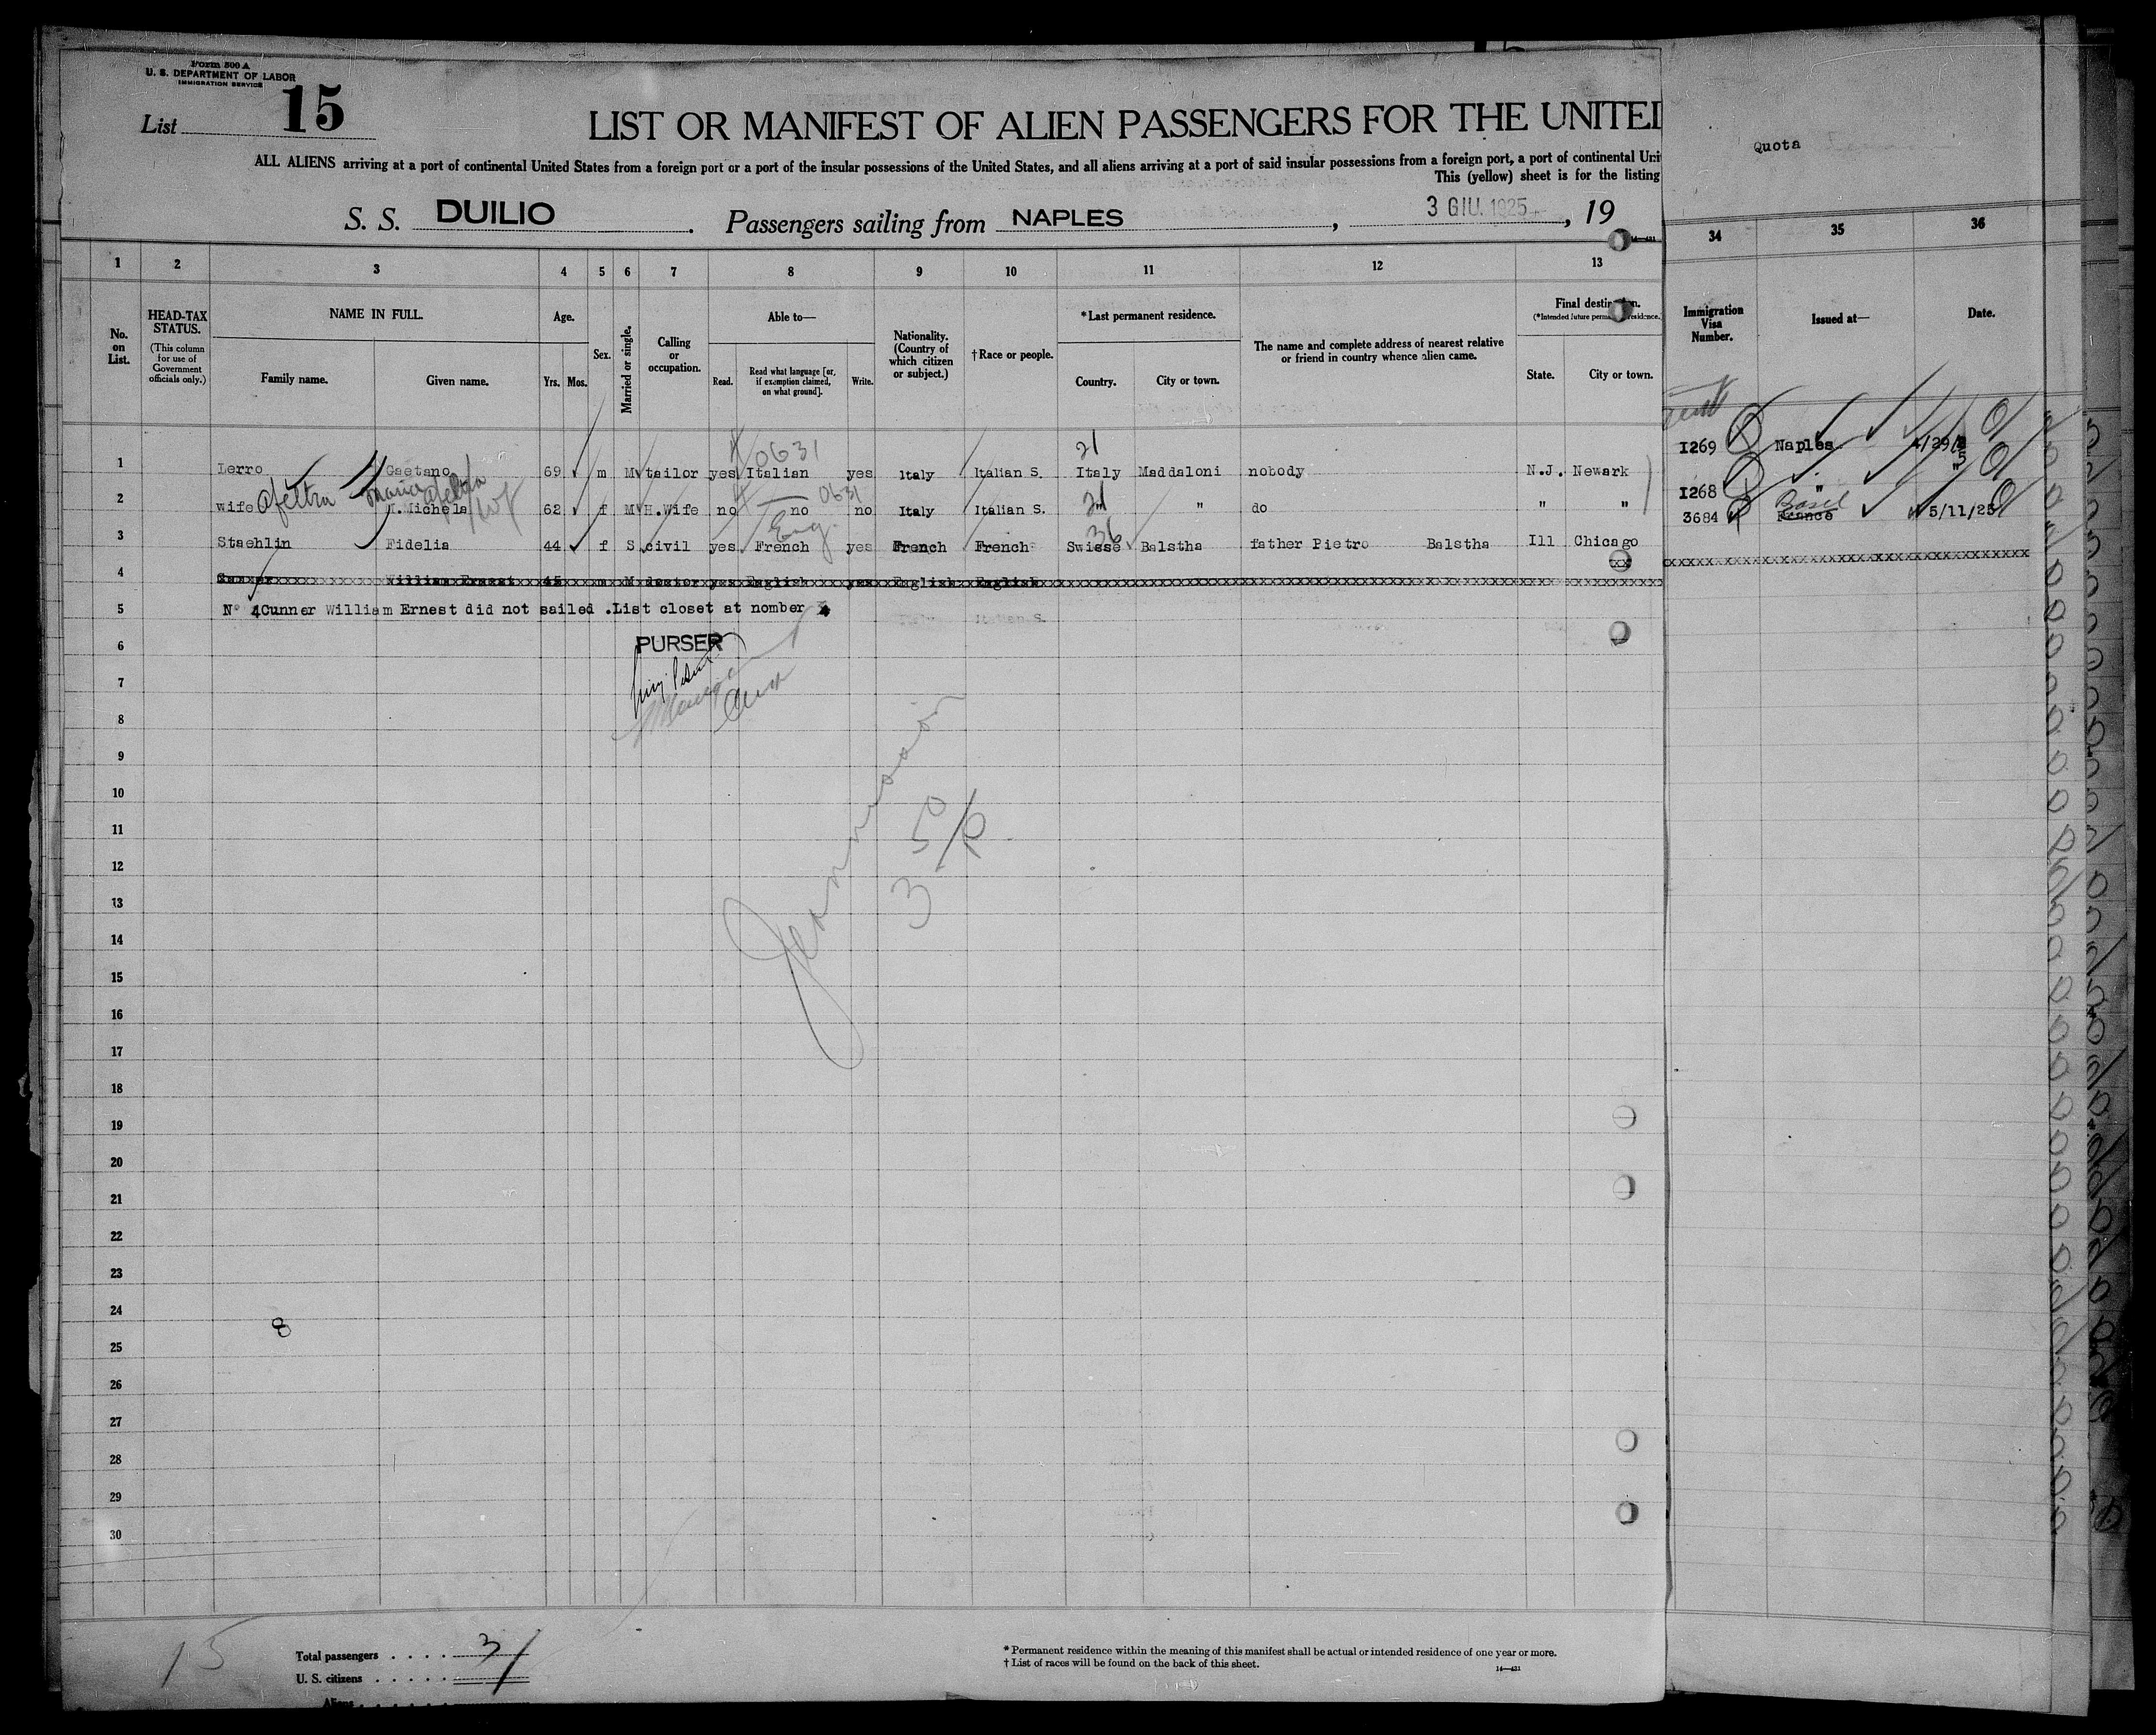 Form 500 A
U. S. DEPARTMENT OF LABOR
IMMIGRATION SERVICE
List 15
LIST OR MANIFEST OF ALIEN PASSENGERS FOR THE UNITED
ALL ALIENS arriving at a port of continental United States from a foreign port or a port of the insular possessions of the United States, and all aliens arriving at a port of said insular possessions from a foreign port, a port of continental Uni
This (yellow) sheet is for the listing
Quota
S. S. DUILIO. Passengers sailing from NAPLES, 3 GIU. 1925, 19
1 2 3 4 5 6 7 8 9 10 11 12 13 34 35 36
No. on List.
HEAD-TAX STATUS.
(This column for use of Government officials only.)
NAME IN FULL.
Family name. Given name.
Age.
Yrs. Mos.
Sex.
Married or single.
Calling or occupation.
Able to—
Read. Read what language [or, if exemption claimed, on what ground]. Write.
Nationality. (Country of which citizen or subject.)
†Race or people.
*Last permanent residence.
Country. City or town.
The name and complete address of nearest relative or friend in country whence alien came.
Final destination.
(*Intended future permanent residence.)
State. City or town.
Immigration Visa Number.
Issued at—
Date.
0631 21
1 Lerro Gaetano 69 m M tailor yes Italian yes Italy Italian S. Italy Maddaloni nobody N.J. Newark 1269 Naples 4/29/25
Maria 0631 21
2 wife M.Michela 62 f M H.Wife no no no Italy Italian S. " do " " 1268 "
Eng. 36 Basel
3 Staehlin Fidelia 44 f S civil yes French yes French French Swisse Balstha father Pietro Balstha Ill Chicago 3684 France 5/11/25
4 William Ernest 45 m M doctor yes English yes English English
5 N° 4 Cunner William Ernest did not sailed .List closet at nomber
6 PURSER
7
8
9
10
11
12
13
14
15
16
17
18
19
20
21
22
23
24
8
25
26
27
28
29
30
3 50
15
Total passengers . . . . 3
U. S. citizens . . . . .
Aliens . . . . . . .
* Permanent residence within the meaning of this manifest shall be actual or intended residence of one year or more.
† List of races will be found on the back of this sheet.
14—421